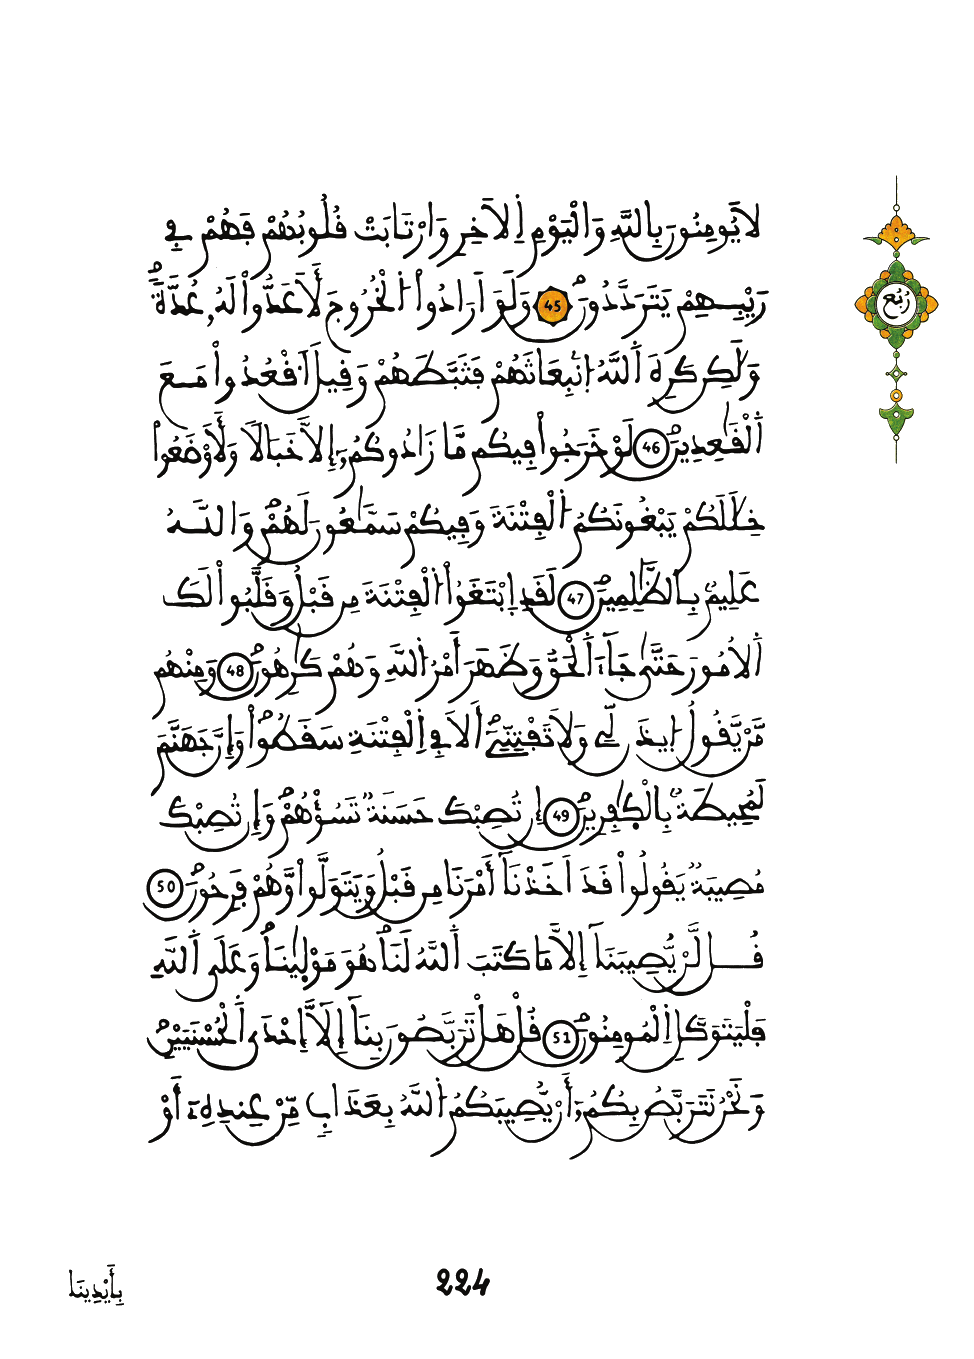 لَا يُومِنُونَ بِاللَّهِ وَالْيَوْمِ اِ۬لَاخِرِ وَارْتَابَتْ قُلُوبُهُمْ فَهُمْ فِي
رَيْبِهِمْ يَتَرَدَّدُونَ 45 وَلَوَ اَرَادُواْ اُ۬لْخُرُوجَ لَأَعَدُّواْ لَهُۥ عُدَّةٗ
وَلَٰكِن كَرِهَ اَ۬للَّهُ اُ۪نۢبِعَاثَهُمْ فَثَبَّطَهُمْ وَقِيلَ اَ۟قْعُدُواْ مَعَ
اَ۬لْقَٰعِدِينَ 46 لَوْ خَرَجُواْ فِيكُم مَّا زَادُوكُمُۥٓ إِلَّا خَبَالٗا وَلَأَوْضَعُواْ
خِلَٰلَكُمْ يَبْغُونَكُمُ اُ۬لْفِتْنَةَ وَفِيكُمْ سَمَّٰعُونَ لَهُمْ وَاللَّهُ
عَلِيمُۢ بِالظَّٰلِمِينَ 47 لَقَدِ اِ۪بْتَغَوُاْ اُ۬لْفِتْنَةَ مِن قَبْلُ وَقَلَّبُواْ لَكَ
اَ۬لُامُورَ حَتَّىٰ جَآءَ اَ۬لْحَقُّ وَظَهَرَ أَمْرُ اُ۬للَّهِ وَهُمْ كَٰرِهُونَ 48 وَمِنْهُم
مَّنْ يَّقُولُ اُ۪يذَن لِّي وَلَا تَفْتِنِّيٓ أَلَا فِي اِ۬لْفِتْنَةِ سَقَطُواْ وَإِنَّ جَهَنَّمَ
لَمُحِيطَةُۢ بِالْكَٰفِرِينَ 49 إِن تُصِبْكَ حَسَنَةٞ تَسُؤْهُمْ وَإِن تُصِبْكَ
مُصِيبَةٞ يَقُولُواْ قَدَ اَخَذْنَآ أَمْرَنَا مِن قَبْلُ وَيَتَوَلَّواْ وَّهُمْ فَرِحُونَ 50
قُل لَّنْ يُّصِيبَنَآ إِلَّا مَا كَتَبَ اَ۬للَّهُ لَنَا هُوَ مَوْلَىٰنَا وَعَلَى اَ۬للَّهِ
فَلْيَتَوَكَّلِ اِ۬لْمُومِنُونَ 51 قُلْ هَلْ تَرَبَّصُونَ بِنَآ إِلَّآ إِحْدَى اَ۬لْحُسْنَيَيْنِ
وَنَحْنُ نَتَرَبَّصُ بِكُمُۥٓ أَنْ يُّصِيبَكُمُ اُ۬للَّهُ بِعَذَابٖ مِّنْ عِندِهِۦٓ أَوْ
رُبُع
بِأَيْدِينَا
224